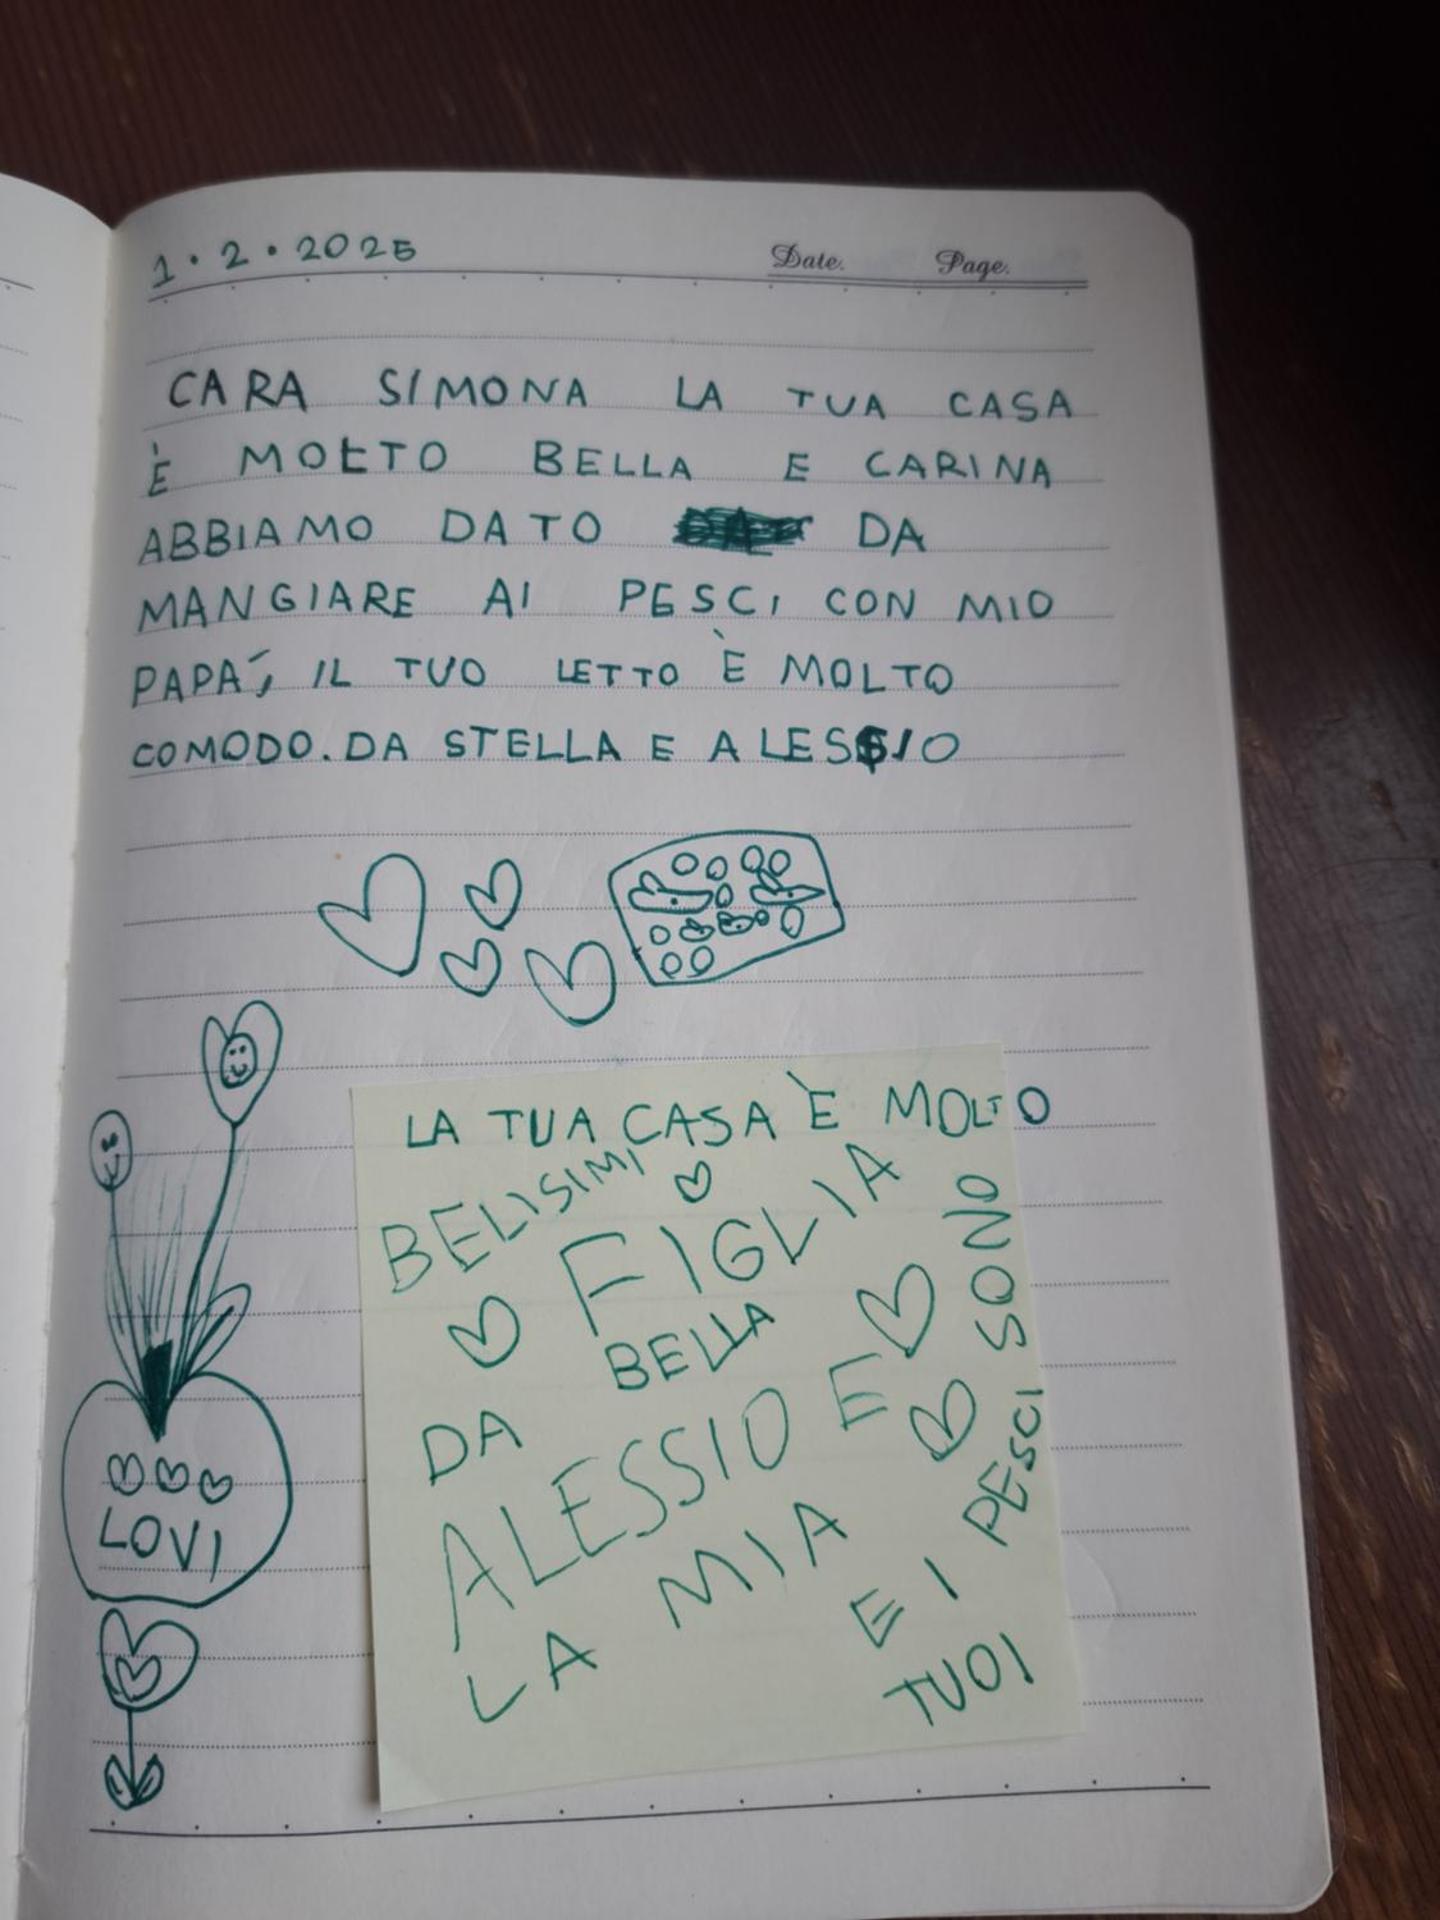 1.2.2025
Date. Page.
CARA SIMONA LA TUA CASA
È MOLTO BELLA E CARINA
ABBIAMO DATO DA
MANGIARE AI PESCI CON MIO
PAPÁ, IL TUO LETTO È MOLTO
COMODO. DA STELLA E ALESSIO
LA TUA CASA È MOLTO
BELISIMI
FIGLIA
BELLA
DA
ALESSIO E
LA MIA
E I PESCI SONO
TUOI
LOVI